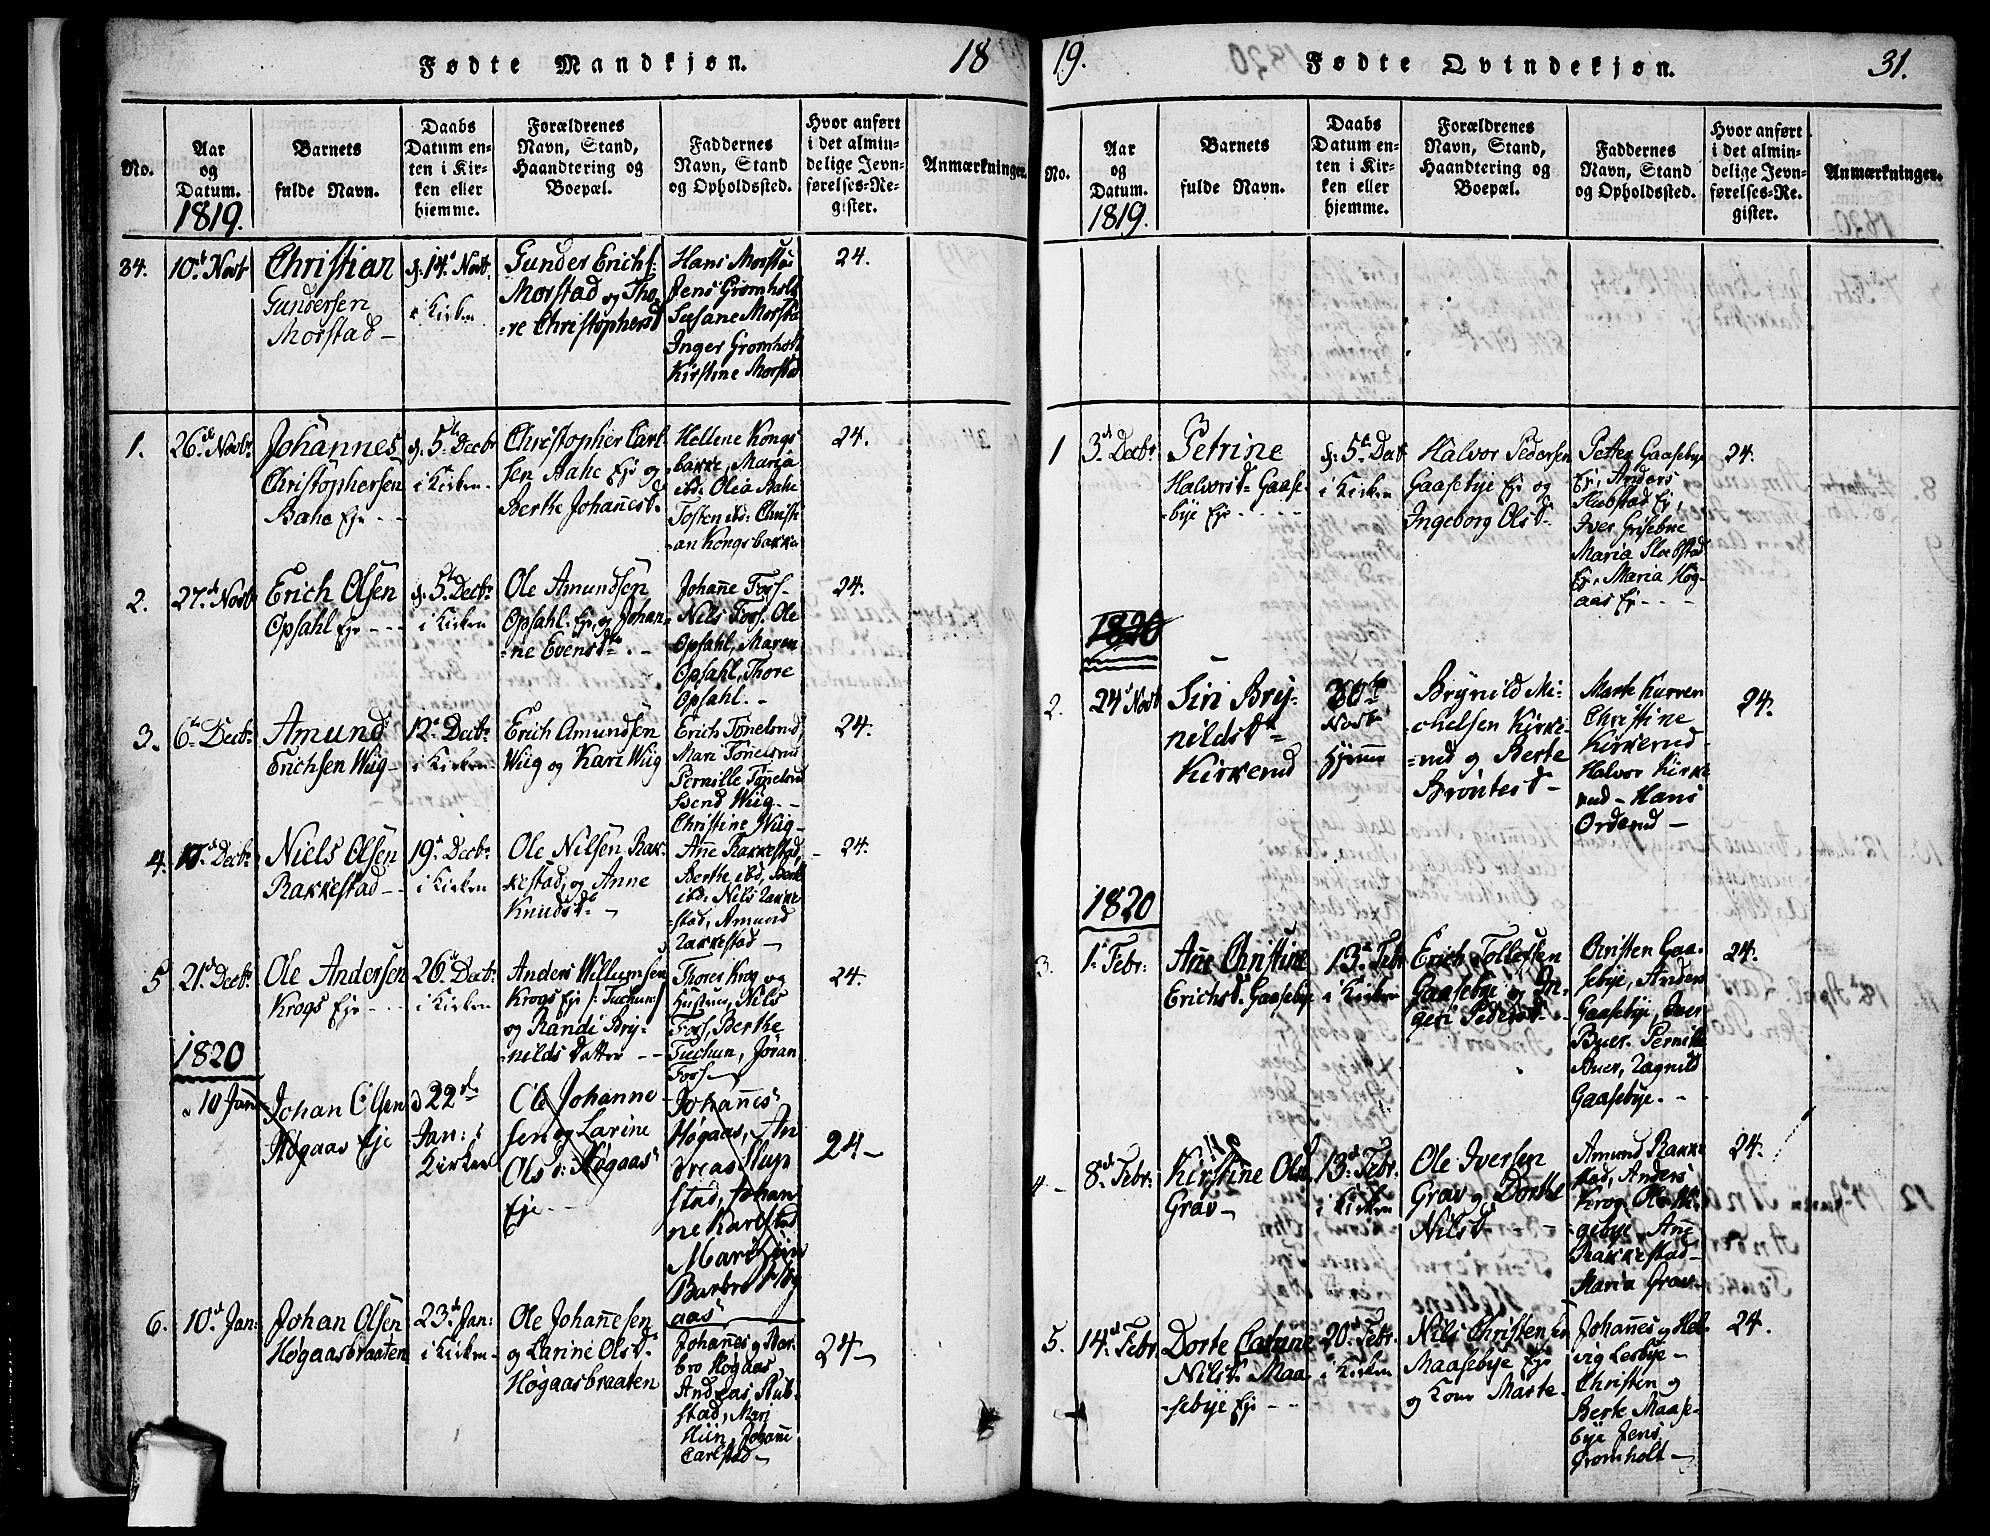 Fødte Mandkjøn.
18
No.
Aar
og
Datum.
1819.
Barnets
fulde Navn.
Daabs
Datum en-
ten i Kir-
ken eller
hjemme.
Forældrenes
Navn, Stand,
Haandtering og
Boepæl.
Faddernes
Navn, Stand
og Opholdssted.
Hvor anført
i det almin-
delige Jevn-
førelses-Re-
gister.
Anmærkninger
34.
10de Novb
Christian
Gundersen
Morstad
14de Novb.
i Kirken
Gunder Erichs.
Morstad og Tho-
re Christophersd
Hans Morstad
Jens Gromholt
Susane Morstad
Inger Gromholt
Kirstine Morstad
24.
1.
26de Novbr
Johannes
Christophersen
Bahe Eje
5te Decbr
i Kirken
Christopher Carl
sen Aahe Eje og
Berthe Johannesd.
Hellene Kongs
bakke, Maria
ibd. Olia Bahe
Tosten ibd. Christi
an Kongsbakke
24.
2.
27de Novbr
Erich Olsen
Opsahl Eje
5te Decbr
i Kirken
Ole Amundsen
Opsahl. Eje og Johan
ne Evensdtr.
Johañe Fors
Nils Fors. Ole
Opsahl, Maren
Opsahl, Thore
Opsahl.
24.
3.
6te Decbr
Amund
Erichsen Wiig
12te Decbr
i Kirken
Erich Amundsen
Wiig og Kari Wiig
Erich Tønelsrud,
Mari Tønelsrud
Pernille Tønelsrud
Bend Wiig.
Christine Wiig
24.
4.
Decbr
Niels Olsen
Rakkestad
19de Decbr
i Kirken
Ole Nilsen Rak-
kestad, og Anne
Knudsd.
Añe Rakkestad,
Berthe ibd, Berthe
ibd. Nils Rakke
stad, Amund
Rakkestad
24.
5
21de Decbr
Ole Andersen
Krogs Eje
26de Decbr
i Kirken
Anders Willumsen
Krogs Eje
og Randi Bry-
nilds Datter
Thores Krog og
Hustrue, Nils
Fors, Berthe
Tuchun, Jøran
Fors
24.
1820
10 Jan
Johan Olsen
Høgaas Eje
22de
Jan: i
Kirken
Ole Johanne
sen og Larine
Olsd: Høgaas
Eje.
Johañes
Høgaas, An
dreas Slup
stad, Johan
ne Karlstad
Mari Hein
Barbro Høg
aas
24
6.
10de Jan:
Johan Olsen
Høgaasbraaten
23de Jan:
i Kirken
Ole Johañesen
og Larine Olsd.
Høgaasbraaten
Johañes og Bar
bro Høgaas
Andreas Slub
stad, Mari
Hein, Johañe
Carlstad
24
19.
Fødte Qvindekjøn.
31.
No.
Aar
og
Datum.
1819.
Barnets
fulde Navn.
Daabs
Datum en-
ten i Kir-
ken eller
hjemme.
Forældrenes
Navn, Stand,
Haandtering og
Boepæl.
Faddernes
Navn, Stand
og Opholdssted.
Hvor anført
i det almin-
delige Jevn-
førelses-Re-
gister.
Anmærkninger.
1
3de Decbr
Petrine
Halvorsd. Gaase
bye Eje
5te Decbr
i Kirken
Halvor Pedersen
Gaasebye Eje og
Ingeborg Olsd
Petter Gaasebye
Ej., Anders
Slobstad Ej,
Iver Grisebne
Maria Slobstad
Ej., Maria Høg-
aas Ej.
24.
1820
2.
24de Novb
Siri Bry-
nildsd
Kirkerud
Novbr
Hjemme
Brynild Mi-
chelsen Kirke-
rud og Berte
Brøntesd
Marte Kurren
Christine
Kirkerud
Halvor Kirke
rud Hans
Orderud
24.
1820
3.
1de Febr:
Añe Christine
Erichsd. Gaasebye
13de Febr
i Kirken
Erich Tollefsen
Gaasebye og In-
geri Pedersd
Christen Gaa-
sebye, Anders
Gaasebye, Iver
Buer. Pernille
Buer, Ragnild
Gaasebye.
24.
4
8de Febr:
Kirstine Olsd
Grav
13de Febr.
i Kirken
Ole Iversen
Grav og Dorthe
Nilsd.
Amund Rakke
stad, Anders
Krog, Ole
gebye, Añe
Rakkestad
Maria Grav
24.
5.
14de Febr
Dorte Catrine
Nilsd. Maa
sebye Eje
20de Febr.
i Kirken
Nils Christensen
Maasebye Eje
og Kone Marte
Johañes og Hel
vig Lesbye
Christen og
Berte Maase-
bye Jens
Gromholt
24.